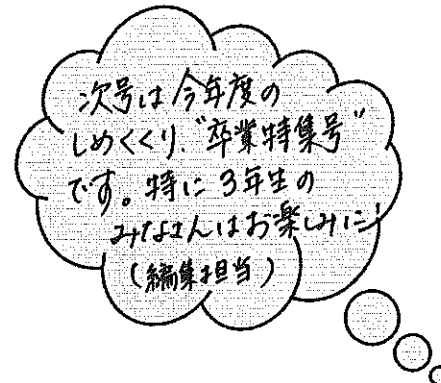 次号は今年度の
しめくくり、“卒業特集号”
です。特に3年生の
みなさんはお楽しみに!
(編集担当)